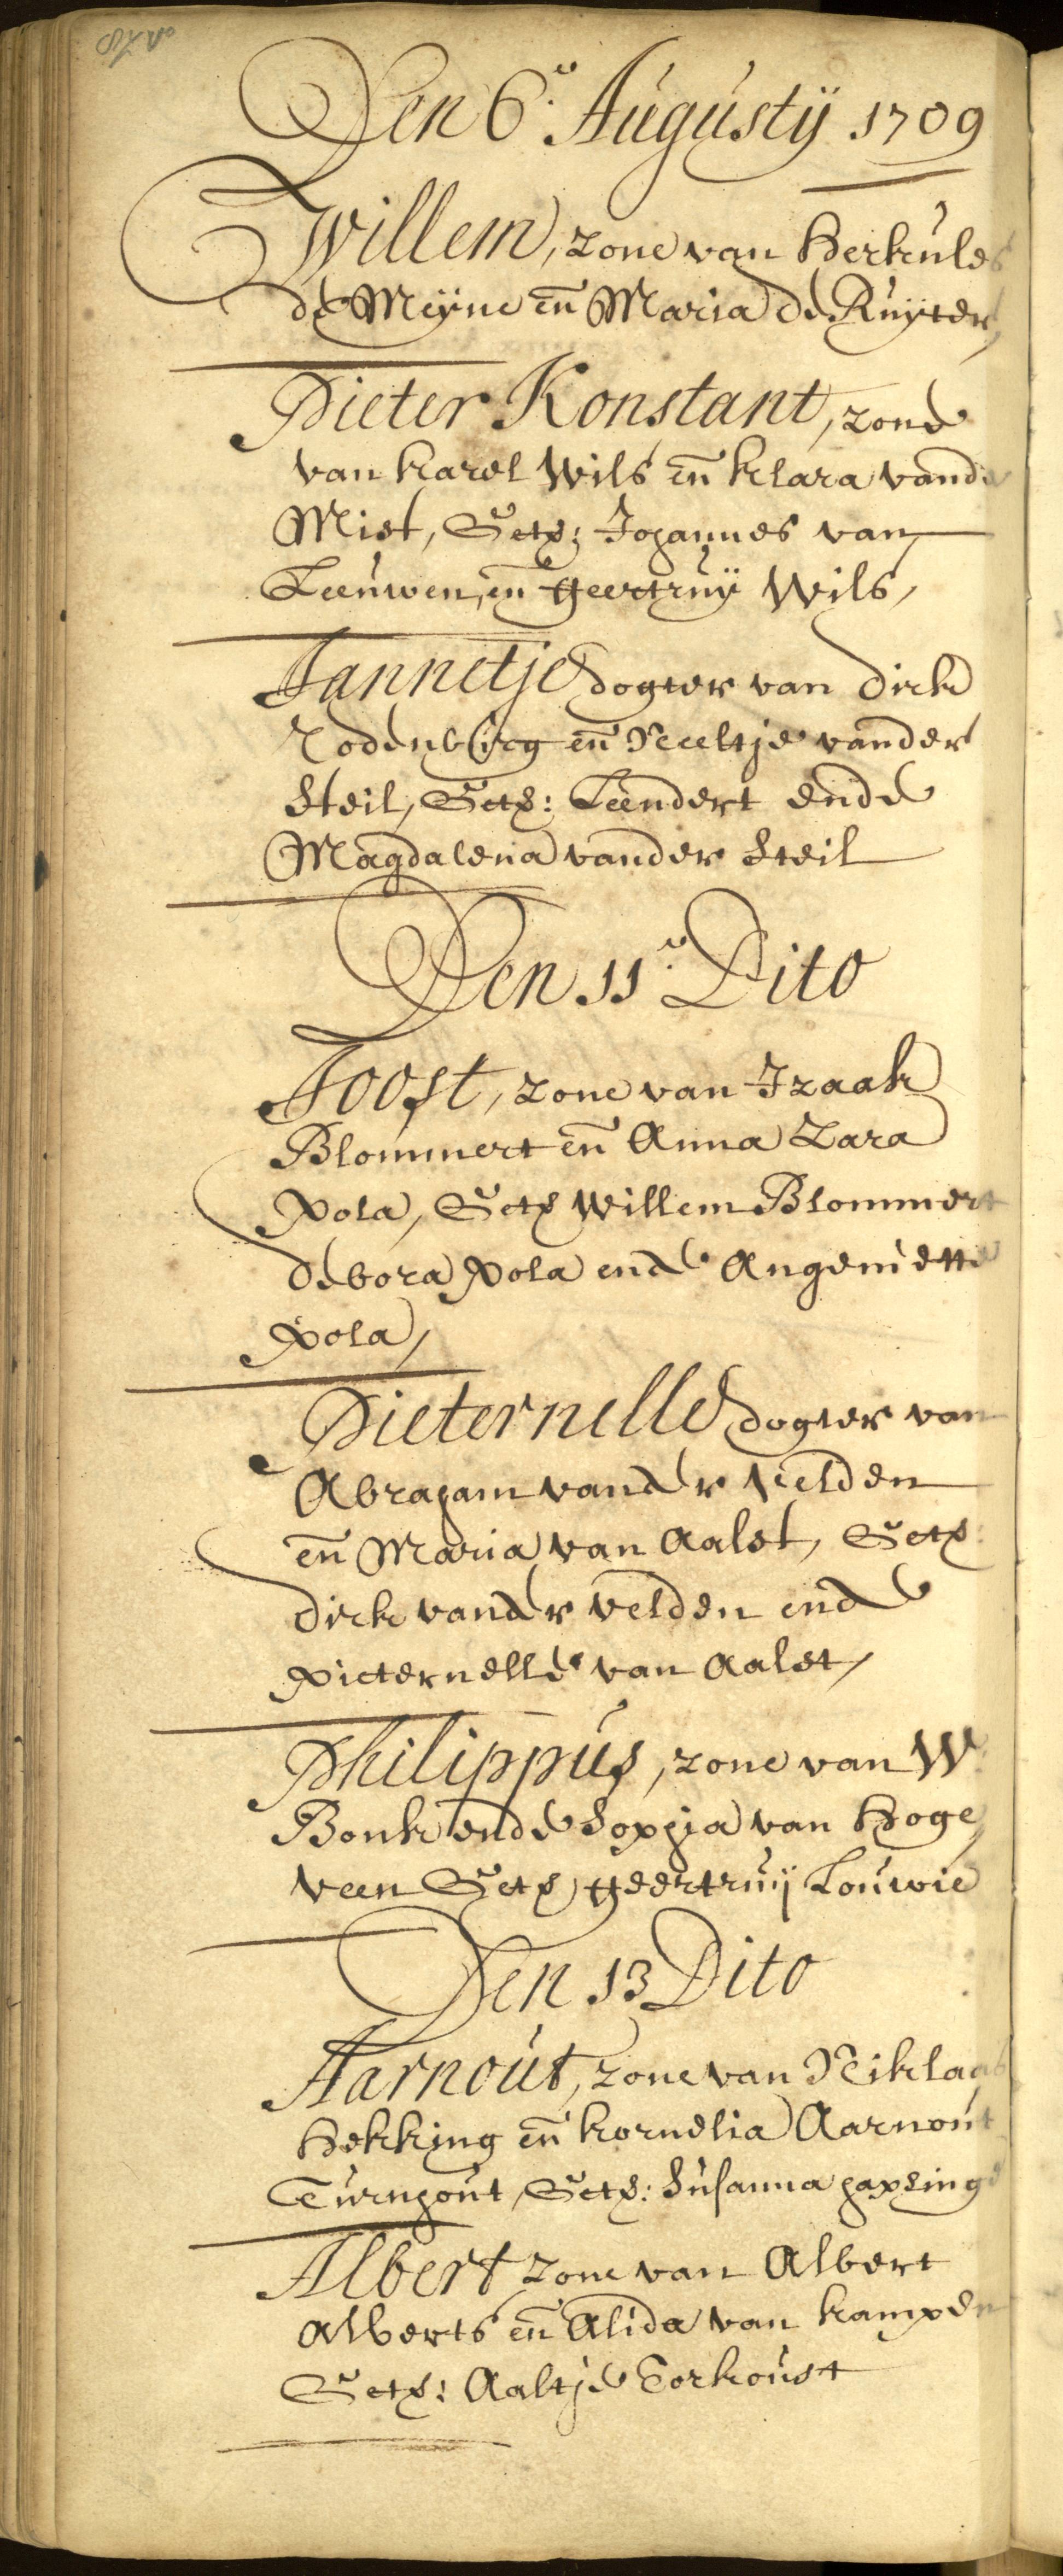 Den 6e. Augustÿ 1709
Willem, zone van Herkules
de Meÿne en Maria de Ruÿter,
Pieter Konstant, zone
van Karel Wils en Klara vande
Miet, Get: Johannes van
Leeuwen, en Geertruÿ Wils,
Jannetje dogter van Dirk
Rodenburg en Neeltje vander
Steil, Get: Leendert ende
Magdalena vander Steil
Den 11e. Dito
Joost, zone van Izaak
Blommert en Anna Zara
Pola, Get Willem Blommert
Debora Pola ende Angeniette
Pola,
Pieternelle dogter van
Abraham vander Velden
en Maria van Aalst, Get:
Dirk vander Velden ende
Pieternelle van Aalst,
Philippus, zone van W:
Bonk ende Sophia van Hoge,
veen Get, Geertruij Louwie
Den 13 Dito
Aarnout, zone van Niklaas
Hekking en Kornelia Aarnout
Turnhout, Get: Susanna
Albert zone van Albert
Alberts en Alida van Kampen
Get: Aaltje Torhoust